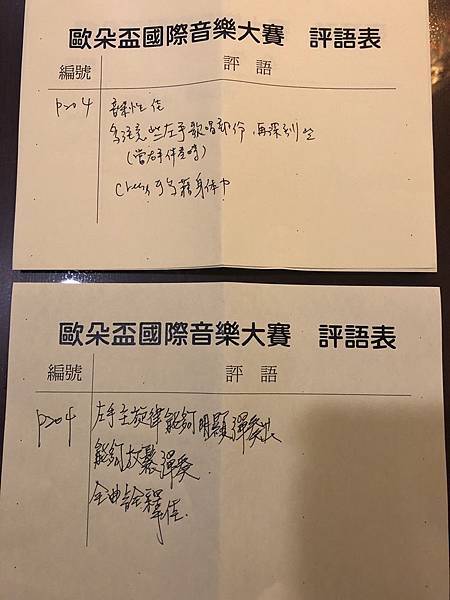 歐朵盃國際音樂大賽 評語表
編號 評語
P204 音樂性佳
多注意些左手歌唱部份,再深刻些
(當右手伴奏時)
可多藉身体力
歐朵盃國際音樂大賽 評語表
編號 評語
P204 左手主旋律能夠明顯彈奏出
能夠放鬆彈奏
全曲詮釋佳.